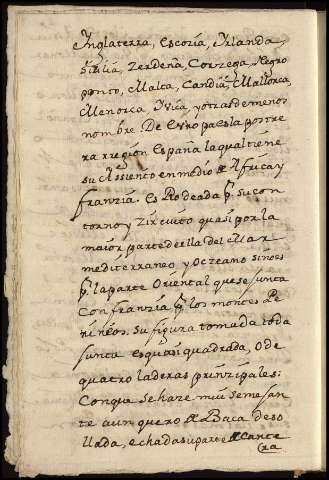 Inglaterra, Escoçia, Irlanda,
Siçilia, Zerdeña, Corzega, Negro
ponto, Malta, Candia, Mallorca,
Menorca Iviça, y otras de menos
nombre. De Europa es la postre
ra rregión España la qual tiene
su Assiento en medio de Africa y
franzia. es Rodeada p. su con
torno y Zircuito quasi por la
maior parte della del Mar
mediterraneo y Oczeano si no es
p. la parte Oriental que se junta
Con franzia p. los montes Pe
rineos. Su figura tomada toda
junta es quasi quadrada, O de
quatro laderas prinzipales:
Con que se haze mui semejan
te a un quero de Baca deso
llada, echada su parte delante
ra